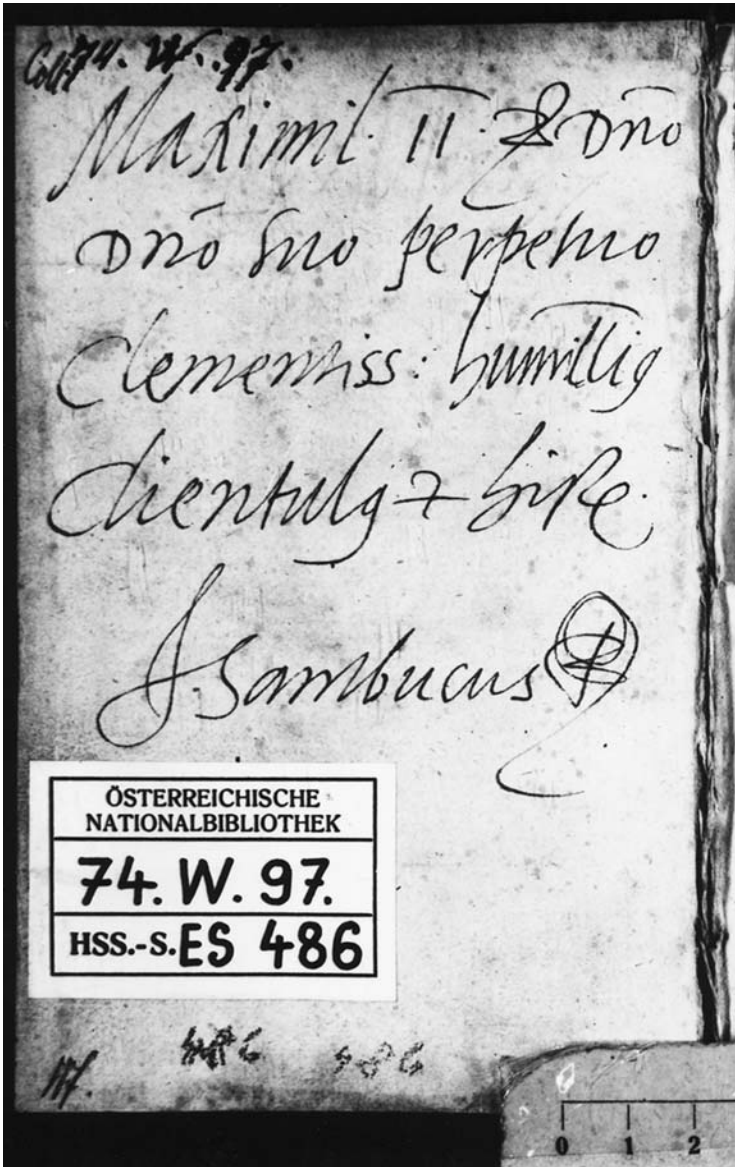 Coll. 74. W. 97.
Maximil. II. & Dn̄o
Dn̄o suo perpetuo
Clementiss: humillig
clientulg ⁊
J. Sambucus
ÖSTERREICHISCHE
NATIONALBIBLIOTHEK
74. W. 97.
HSS.-S. ES 486
486 486
0 1 2